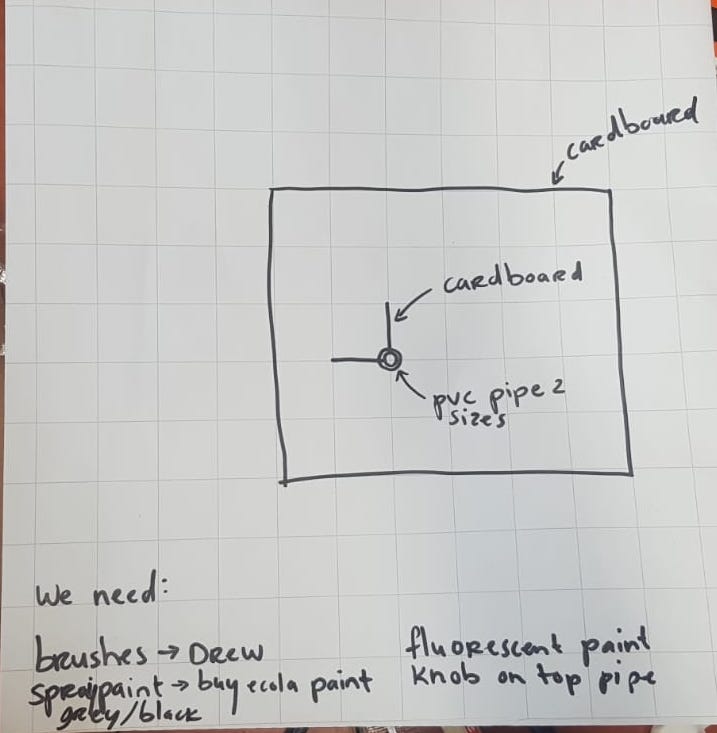 cardboard
cardboard
pvc pipe 2
sizes
We need:
brushes → Drew
spraypaint → buy ecola paint
grey/black
fluorescent paint
knob on top pipe